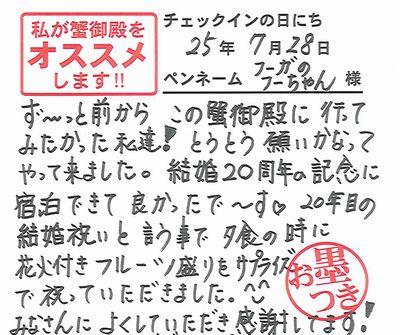 私が蟹御殿を
オススメ
します!!
チェックインの日にち
25年 7月28日
ペンネーム フーガのフーちゃん 様
ず〜っと前から この蟹御殿に 行って
みたかった私達! とうとう 願いかなって
やって来ました。結婚20周年の記念に
宿泊できて 良かったで〜す♡ 20年目の
結婚祝いと 言う事で 夕食の時に
花火付きフルーツ盛りをサプライズ
で祝っていただきました。^^
みなさんに よくしていただき感謝してます!
お墨つき